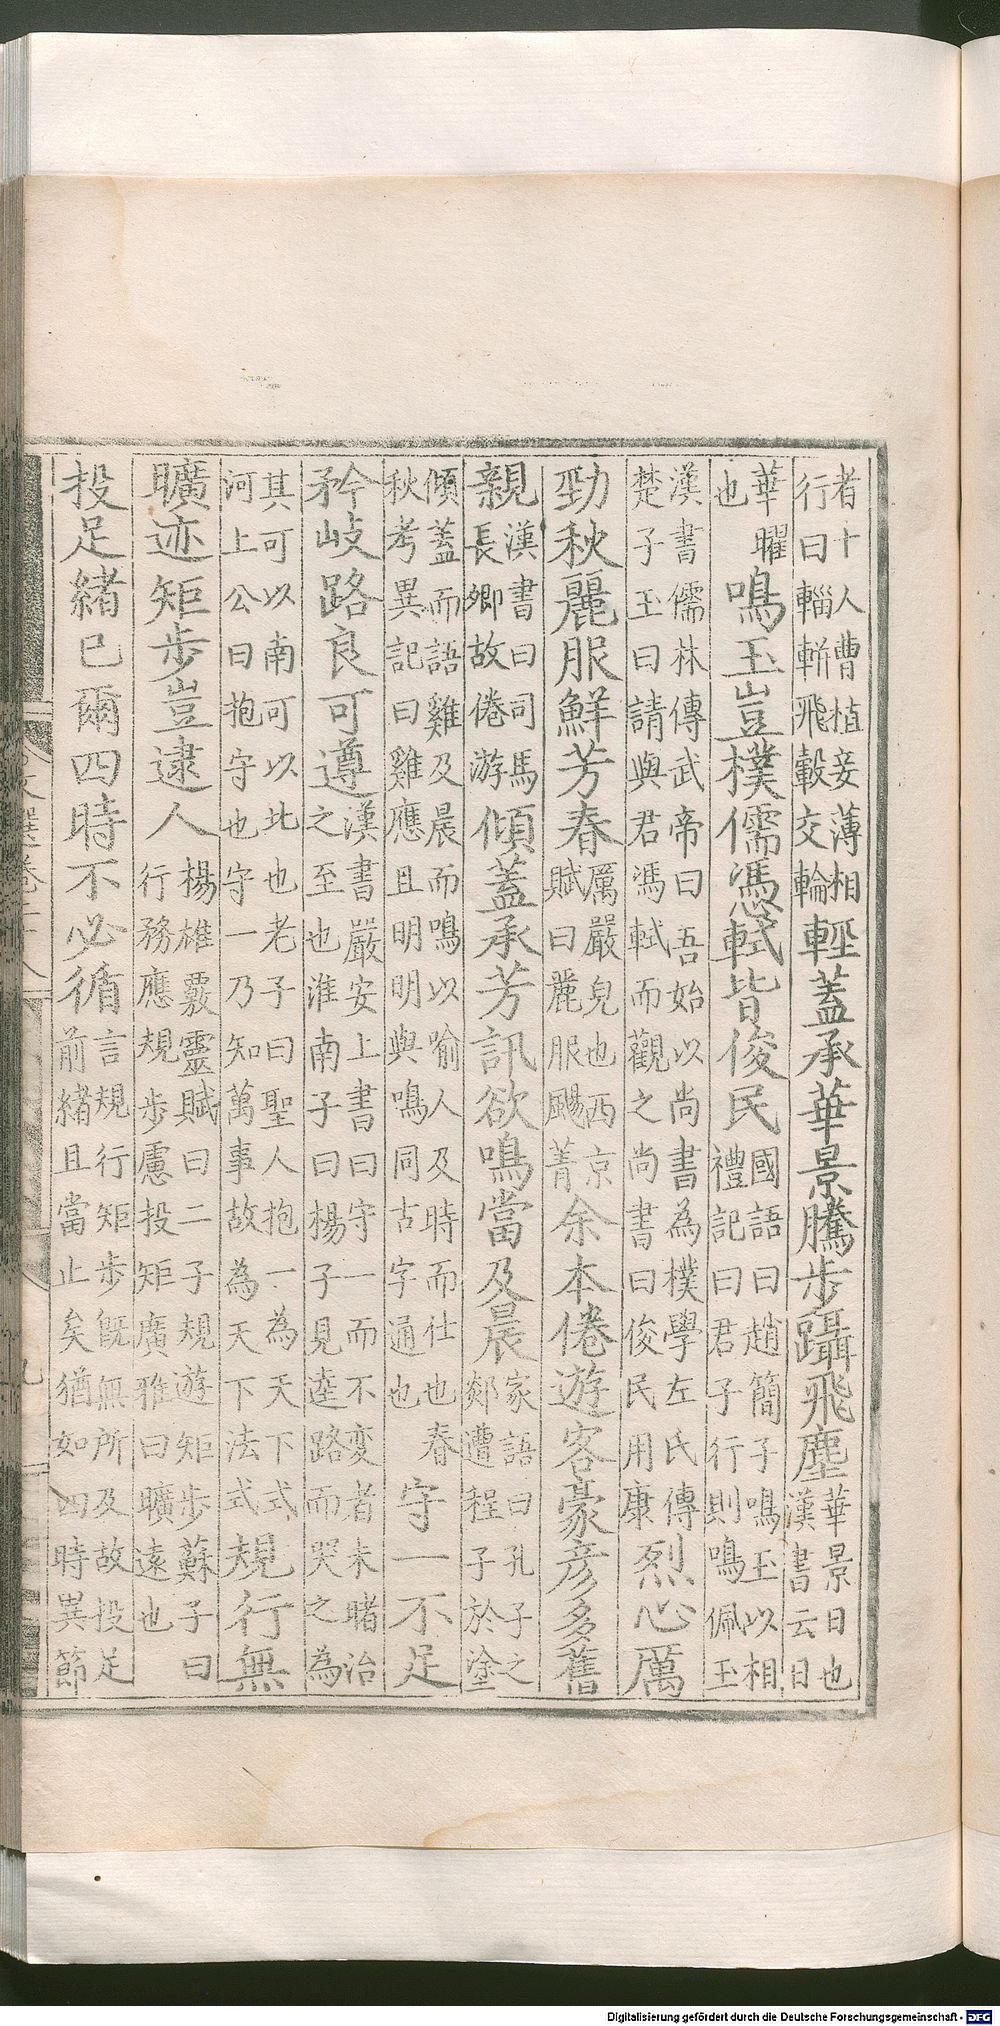 者十人曹植妾薄相
行曰輜軿飛轂交輪
輕蓋承華景騰步躡飛塵
華景日也
漢書云日
華曜
也
鳴玉豈樸儒憑軾皆俊民
國語曰趙簡子鳴玉以相
禮記曰君子行則鳴佩玉
漢書儒林傳武帝曰吾始以尚書為樸學左氏傳
楚子玉曰請與君馮軾而觀之尚書曰俊民用康
烈心厲
勁秋麗服鮮芳春
厲嚴皃也西京
賦曰麗服颺菁
余本倦遊客豪彥多舊
親
漢書曰司馬
長卿故倦游
傾蓋承芳訊欲鳴當及晨
家語曰孔子之
郯遭程子於塗
傾蓋而語雞及晨而鳴以喻人及時而仕也春
秋考異記曰雞應旦明明與鳴同古字通也
守一不足
矜歧路良可遵
漢書嚴安上書曰守一而不變者未睹治
之至也淮南子曰楊子見逵路而哭之為
其可以南可以北也老子曰聖人抱一為天下式
河上公曰抱守也守一乃知萬事故為天下法式
規行無
曠迹矩步豈逮人
楊雄覈靈賦曰二子規遊矩步蘇子曰
行務應規步慮投矩廣雅曰曠遠也
投足緒已爾四時不必循
言規行矩步旣無所及故投足
前緒且當止矣猶如四時異節
文選卷二十八
九
Digitalisierung gefördert durch die Deutsche Forschungsgemeinschaft - DFG